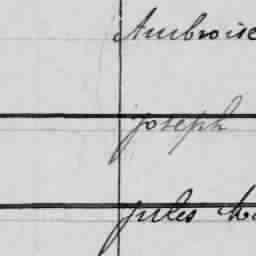 Ambroise
Joseph
Jules